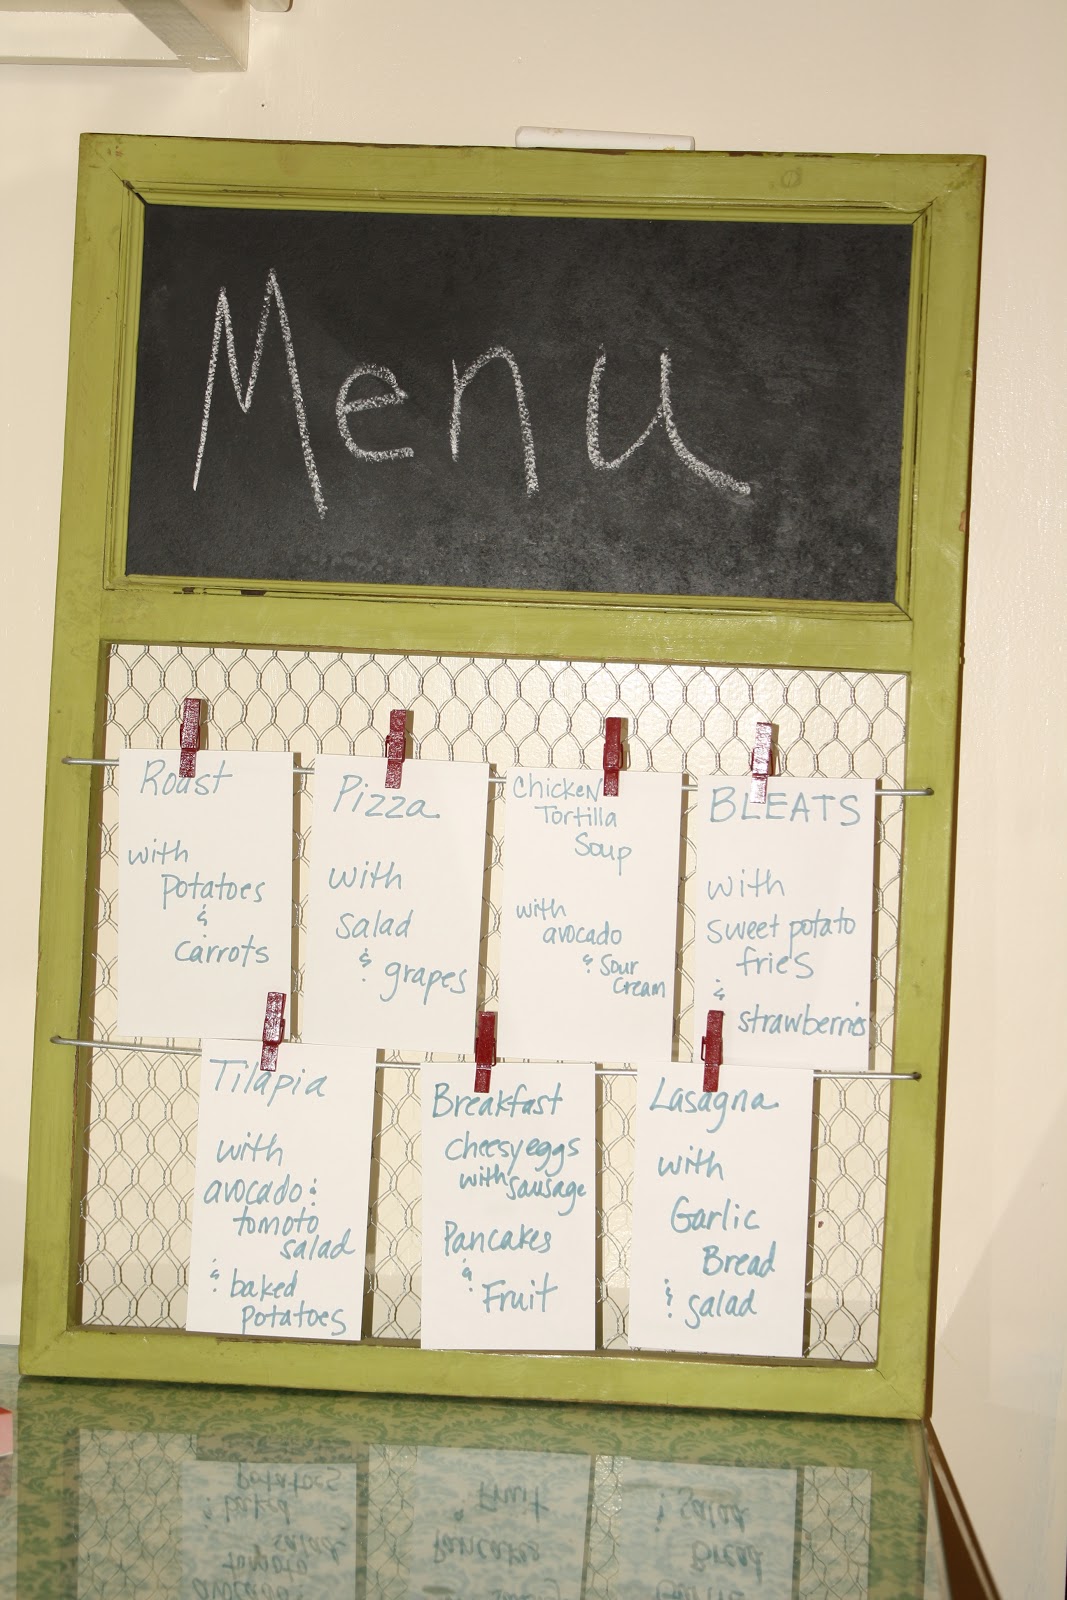 Menu
Roast
with
potatoes
&
carrots
Pizza
with
salad
&
grapes
Chicken
Tortilla
Soup
with
avocado
& sour
cream
BLEATS
with
sweet potato
fries
&
strawberries
Tilapia
with
avocado &
tomoto
salad
& baked
potatoes
Breakfast
cheesy eggs
with sausage
Pancakes
&
Fruit
Lasagna
with
Garlic
Bread
& salad